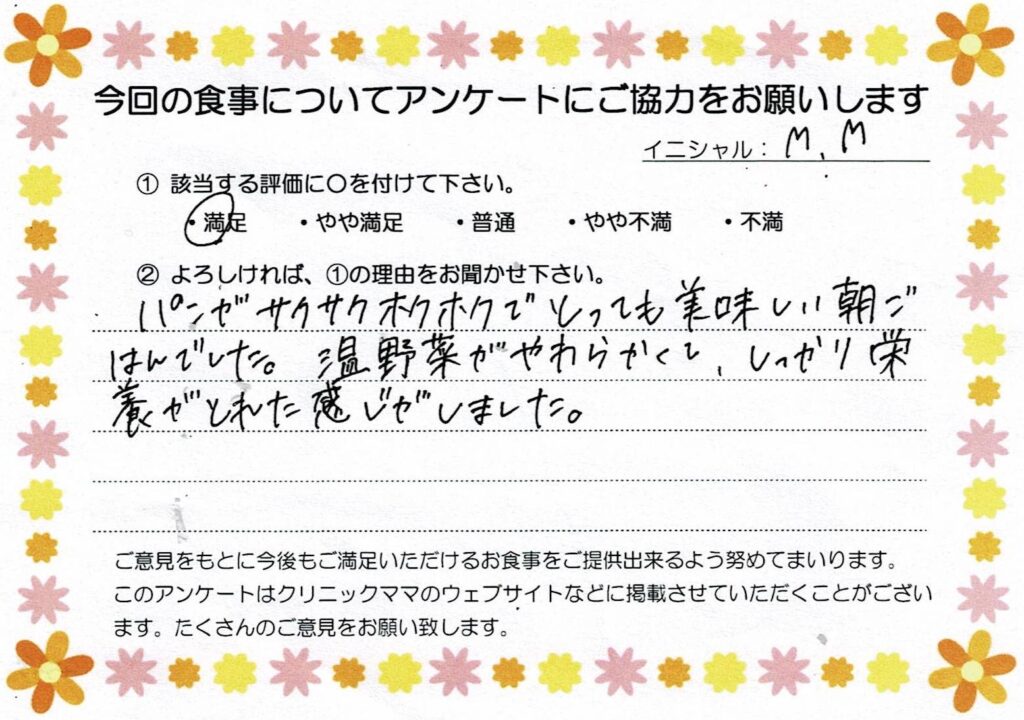 今回の食事についてアンケートにご協力をお願いします
イニシャル： M. M
① 該当する評価に〇を付けて下さい。
・満足 ・やや満足 ・普通 ・やや不満 ・不満
② よろしければ、①の理由をお聞かせ下さい。
パンがサクサクホクホクでとっても美味しい朝ご
はんでした。温野菜がやわらかくて、しっかり栄
養がとれた感じがしました。
ご意見をもとに今後もご満足いただけるお食事をご提供出来るよう努めてまいります。
このアンケートはクリニックママのウェブサイトなどに掲載させていただくことがござい
ます。たくさんのご意見をお願い致します。